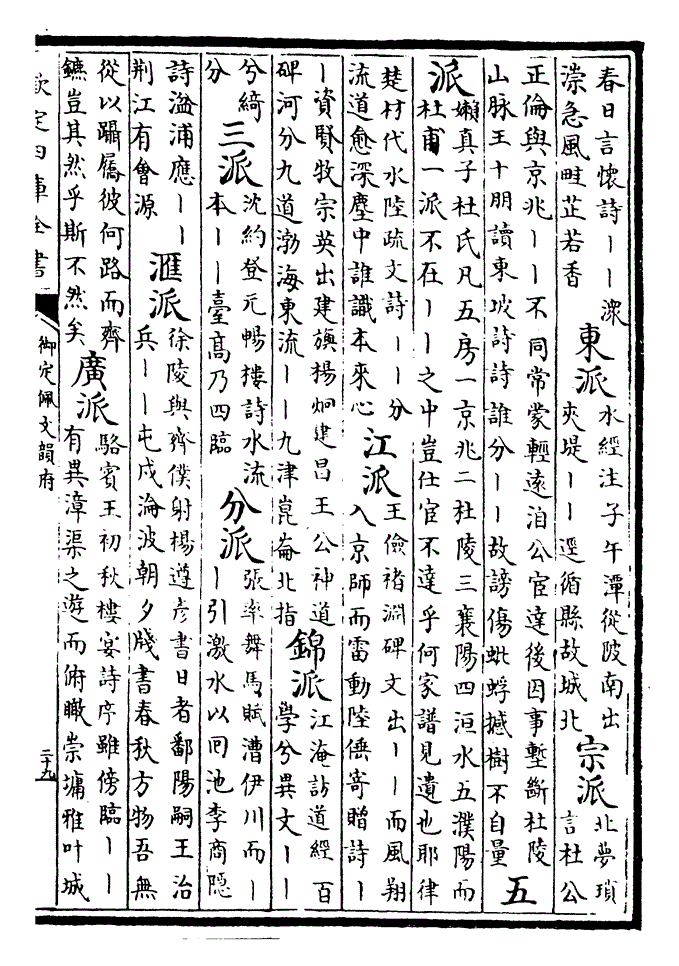 春日言懷詩丨丨潀
漴急風畦芷若香
東派
水經注子午潭從陂南出
夾堤丨丨逕循縣故城北
宗派
北夢瑣
言杜公
正倫與京兆丨丨不同常蒙輕遠洎公宦達後因事塹斷杜陵
山脉王十朋讀東坡詩詩誰分丨丨故謗傷蚍蜉撼樹不自量
五
派
嬾真子杜氏凡五房一京兆二杜陵三襄陽四洹水五濮陽而
杜甫一派不在丨丨之中豈仕宦不達乎何家譜見遺也耶律
楚材代水陸疏文詩丨丨分
流道愈深塵中誰識本來心
江派
王儉褚淵碑文出丨丨而風翔
入京師而雷動陸倕寄贈詩丨
丨資賢牧宗英出建旟楊炯建昌王公神道
碑河分九道渤海東流丨丨九津崑崙北指
錦派
江淹訪道經百
學兮異文丨丨
兮綺
分
三派
沈約登元暢樓詩水流
本丨丨臺高乃四臨
分派
張率舞馬賦漕伊川而丨
丨引激水以囘池李商隱
詩湓浦應丨丨
荆江有會源
滙派
徐陵與齊僕射楊遵彦書日者鄱陽嗣王治
兵丨丨屯戍淪波朝夕牋書春秋方物吾無
從以躡屩彼何路而齊
鑣豈其然乎斯不然矣
廣派
駱賓王初秋樓宴詩序雖傍臨丨丨
有異漳渠之遊而俯瞰崇墉雅叶城
欽定四庫全書
御定佩文韻府
二十九